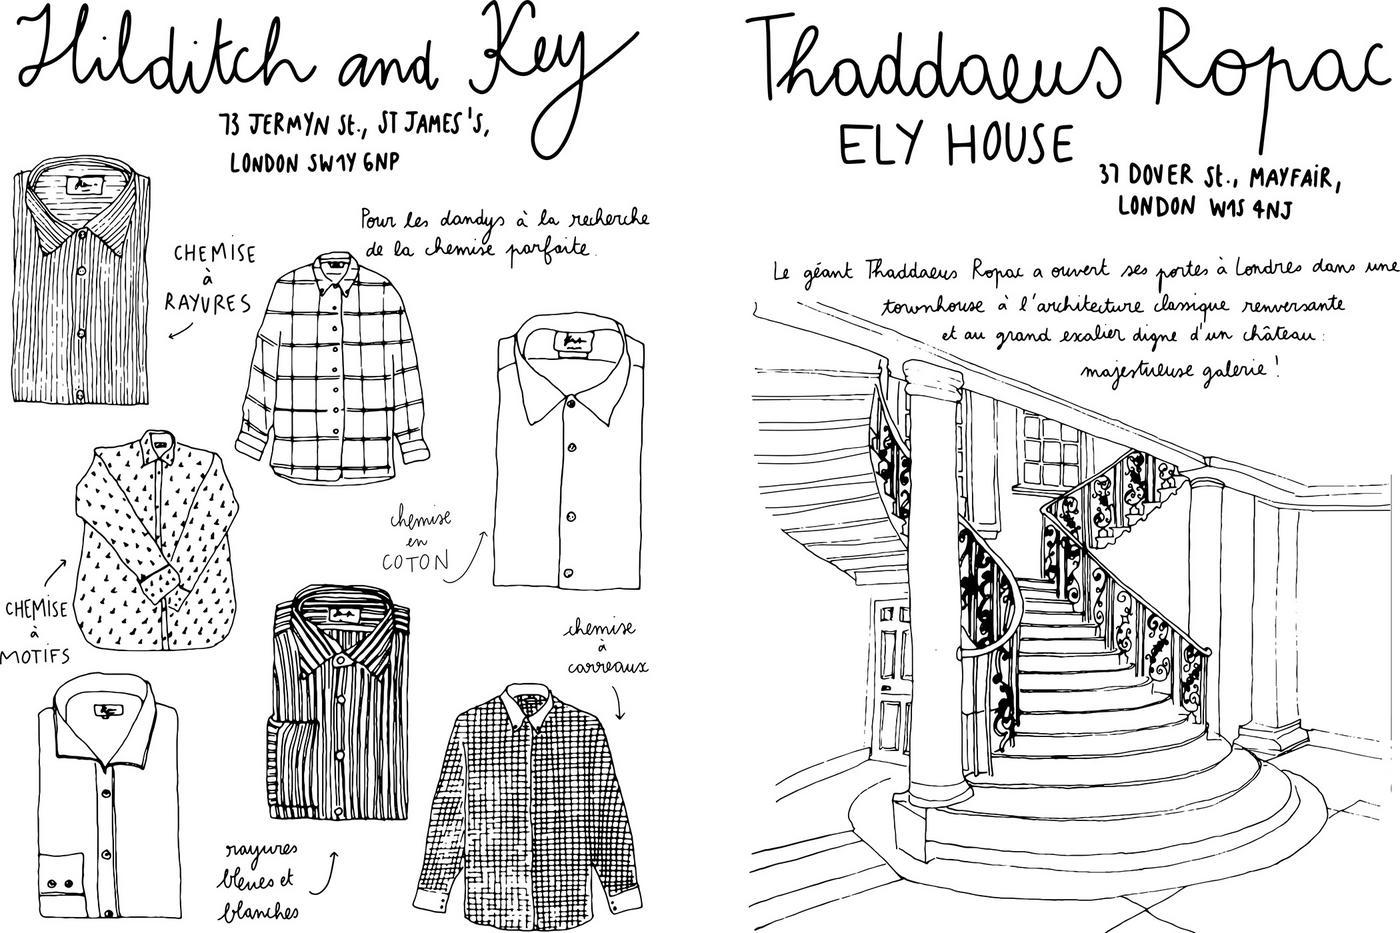 Hilditch and Key
73 JERMYN St., ST JAMES'S,
LONDON SW1Y 6NP
Pour les dandys à la recherche
de la chemise parfaite.
CHEMISE
à
RAYURES
chemise
en
COTON
CHEMISE
à
MOTIFS
chemise
à
carreaux
rayures
bleues et
blanches
Thaddaeus Ropac
ELY HOUSE
37 DOVER St., MAYFAIR,
LONDON W1S 4NJ
Le géant Thaddaeus Ropac a ouvert ses portes à Londres dans une
townhouse à l'architecture classique renversante
et au grand escalier digne d'un château :
majestueuse galerie !